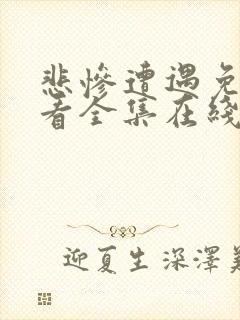 悲慘遭遇免
看全集在綫
迎夏生深澤